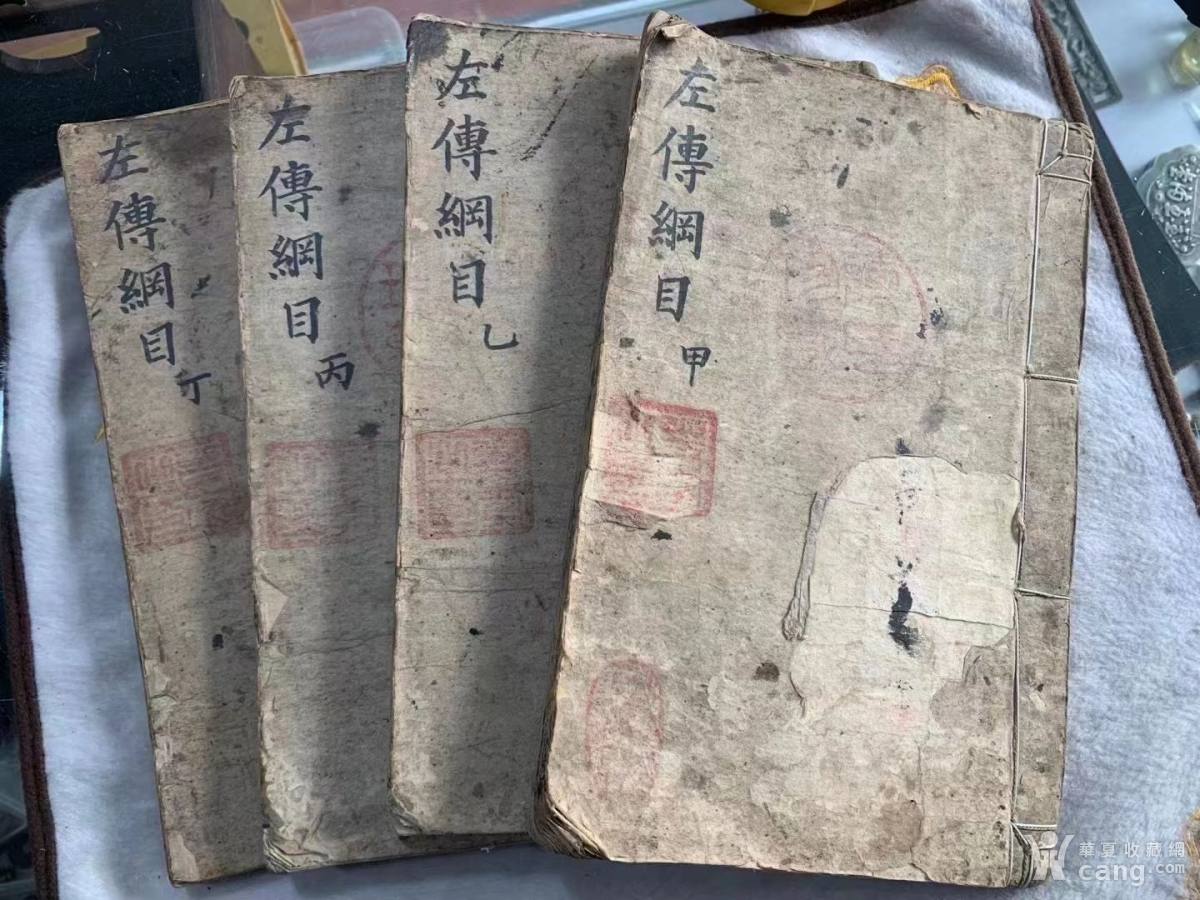 左傳綱目 甲
左傳綱目 乙
左傳綱目 丙
左傳綱目 丁
華夏收藏網
cang.com